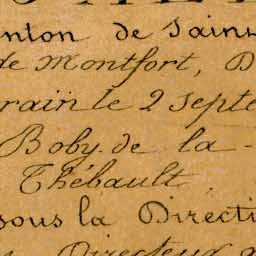 nton de Saint
de Montfort, D
rain le 2 septe
Boby. de la -
Thébault
sous la Directi
Directeur